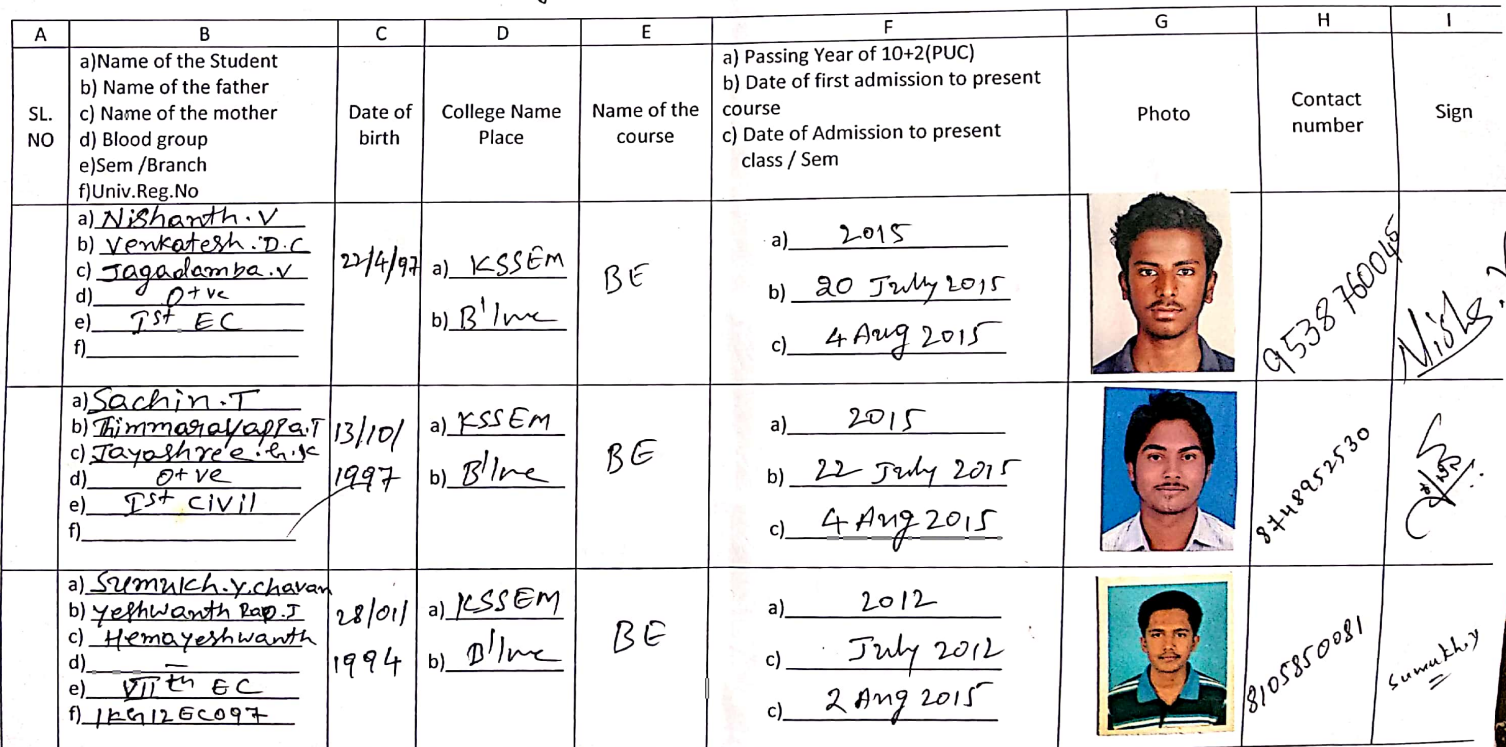 A B C D E F G H I
SL. NO
a)Name of the Student
b) Name of the father
c) Name of the mother
d) Blood group
e)Sem /Branch
f)Univ.Reg.No
Date of birth
College Name Place
Name of the course
a) Passing Year of 10+2(PUC)
b) Date of first admission to present
course
c) Date of Admission to present
class / Sem
Photo
Contact number
Sign
a) Nishanth.V
b) Venkatesh.D.C
c) Jagadamba.V
d) O+ve
e) Ist EC
f)
22/4/97
a) KSSEM
b) B'lne
BE
a) 2015
b) 20 July 2015
c) 4 Aug 2015
9538760045
a) Sachin.T
b) Thimmarayappa.T
c) Jayashree.h.k
d) O+ve
e) Ist Civil
f)
13/10/
1997
a) KSSEM
b) B'lne
BE
a) 2015
b) 22 July 2015
c) 4 Aug 2015
8748952530
a) Sumukh.Y.chavan
b) Yeshwanth Rao.J
c) Hemayeshwanth
d) —
e) VIIth EC
f) 1KG12EC097
28/01/
1994
a) KSSEM
b) B'lne
BE
a) 2012
c) July 2012
c) 2 Aug 2015
8105850081
Sumukh.y